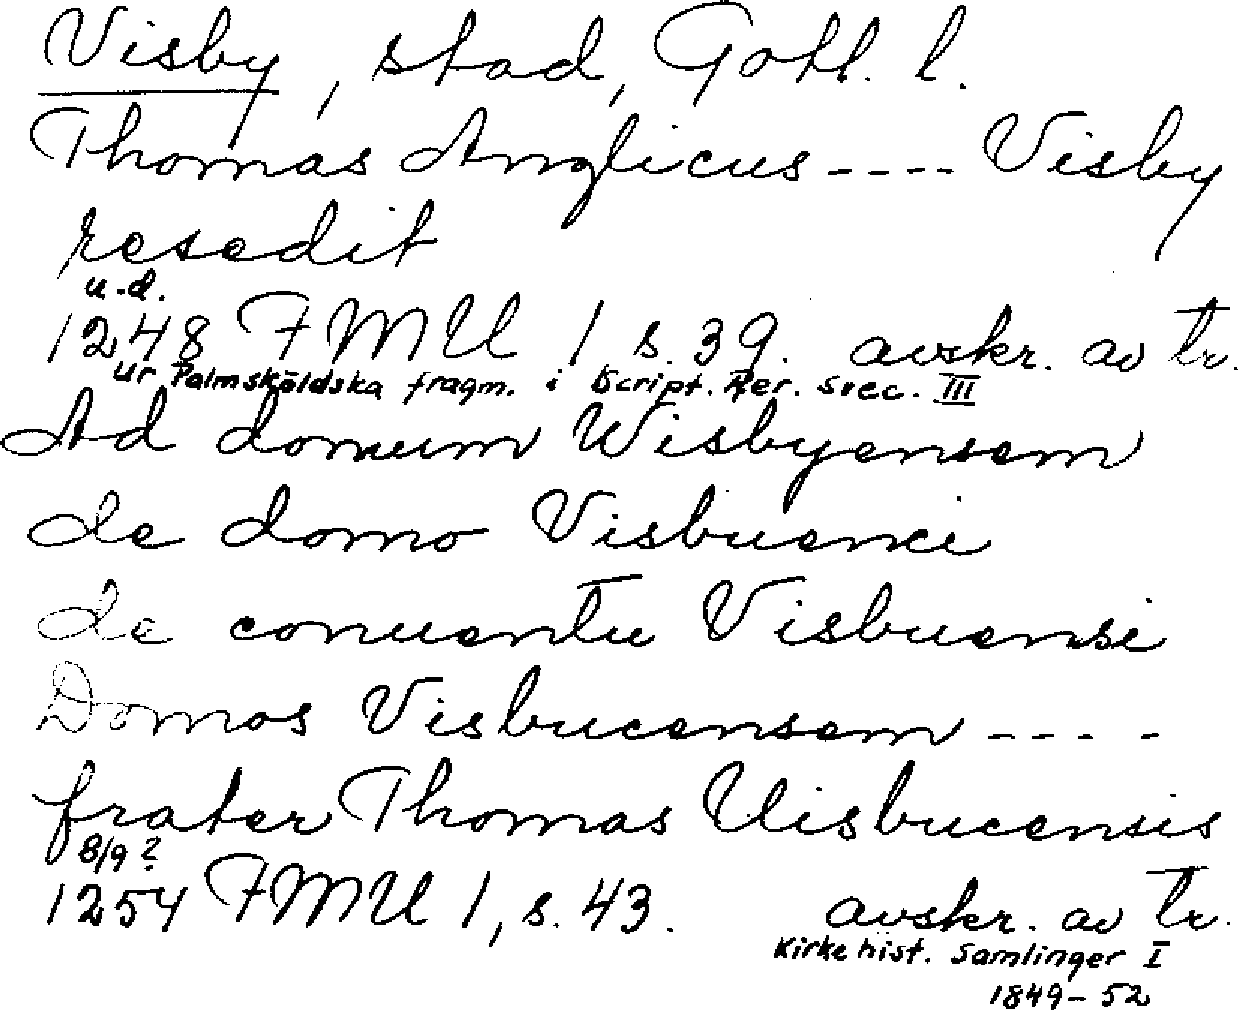 Visby, stad, Gotl. l.
Thomas Anglicus ---- Visby
resedit
u.d.
1248 FMU 1 s. 39. avskr. av tr.
ur Palmsköldska fragm. i Script. Rer. Svec. III
Ad domum Wisbyensem
de domo Visbuenci
de conuentu Visbuensi
Domos Visbucensem ----
frater Thomas Uisbucensis
8/9 ?
1254 FMU 1, s. 43. avskr. av tr.
Kirkehist. Samlinger I
1849-52